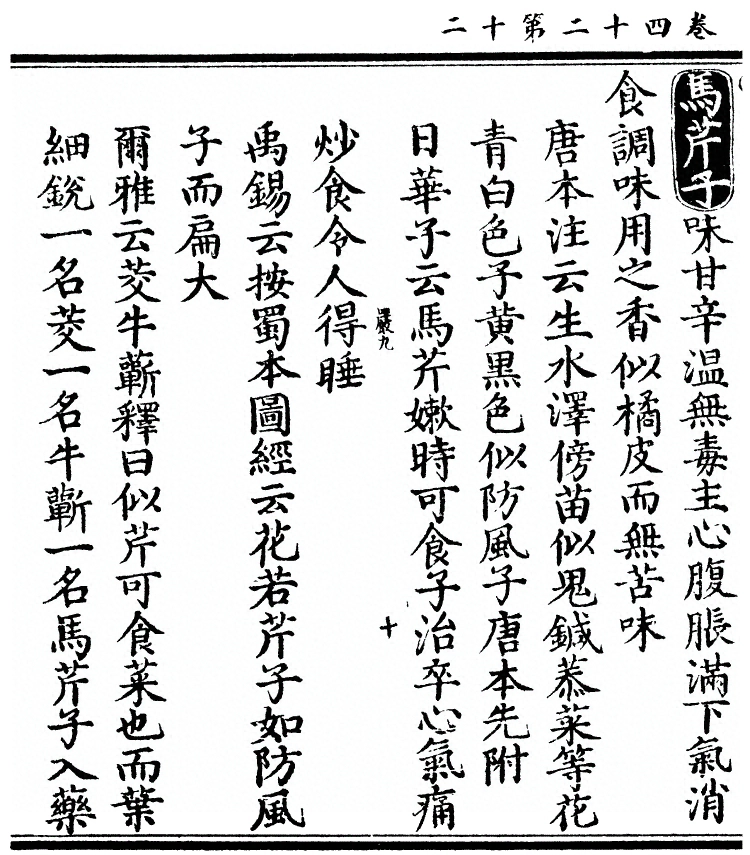 卷四十二第十二
馬芹子味甘辛温無毒主心腹脹滿下氣消
食調味用之香似橘皮而無苦味
唐本注云生水澤傍苗似鬼鍼菾菜等花
青白色子黄黑色似防風子唐本先附
日華子云馬芹嫰時可食子治卒心氣痛
炒食令人得睡
禹錫云按蜀本圖經云花若芹子如防風
子而扁大
爾雅云茭牛蘄釋曰似芹可食菜也而葉
細鋭一名茭一名牛蘄一名馬芹子入藥
十